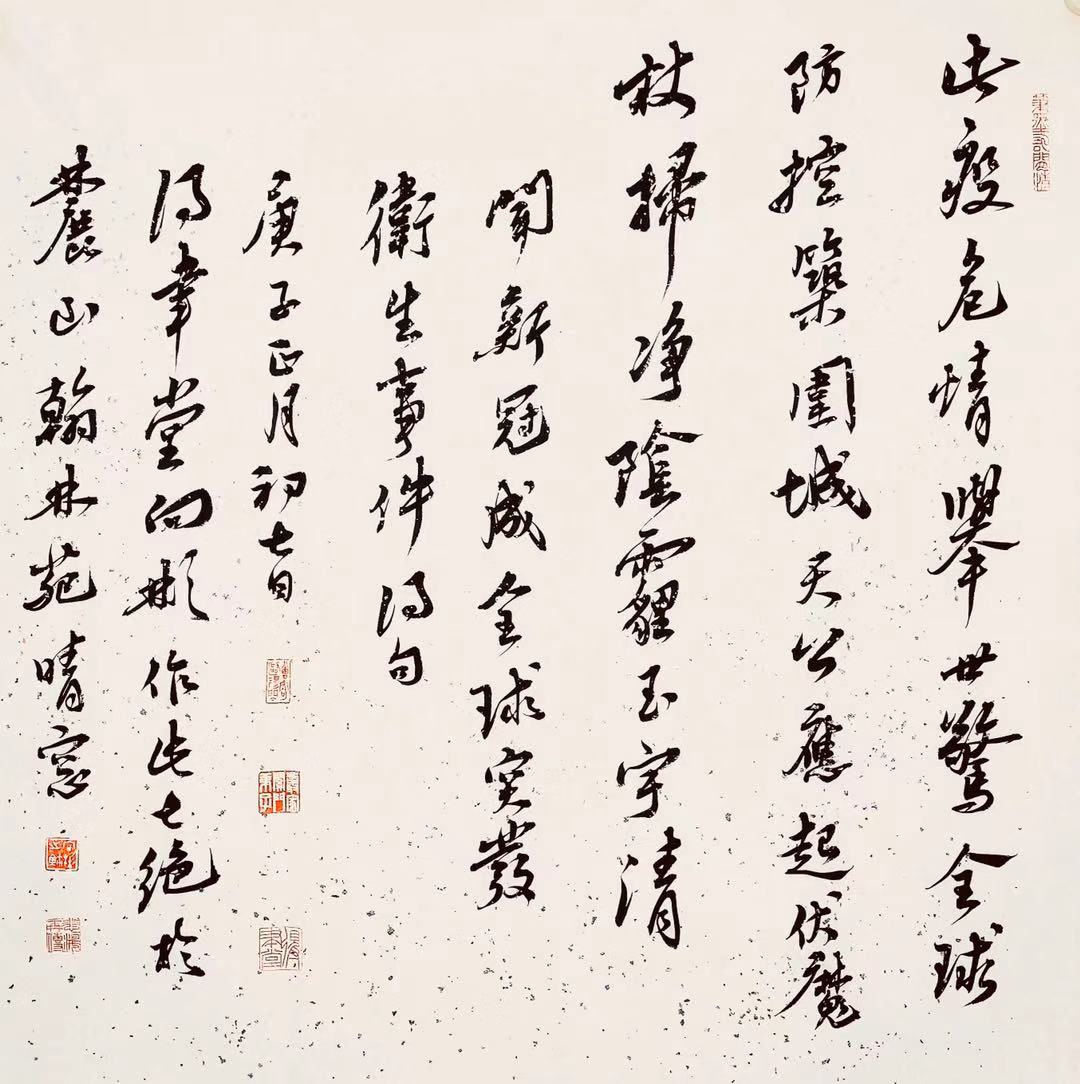 此疫危情舉世驚全球
防控築圍城天公應起伏魔
杖掃净陰霾玉宇清
聞新冠成全球突發
衛生事件得句
庚子正月初七日
得堂向彬作此七絶於
麓山翰林苑晴窓